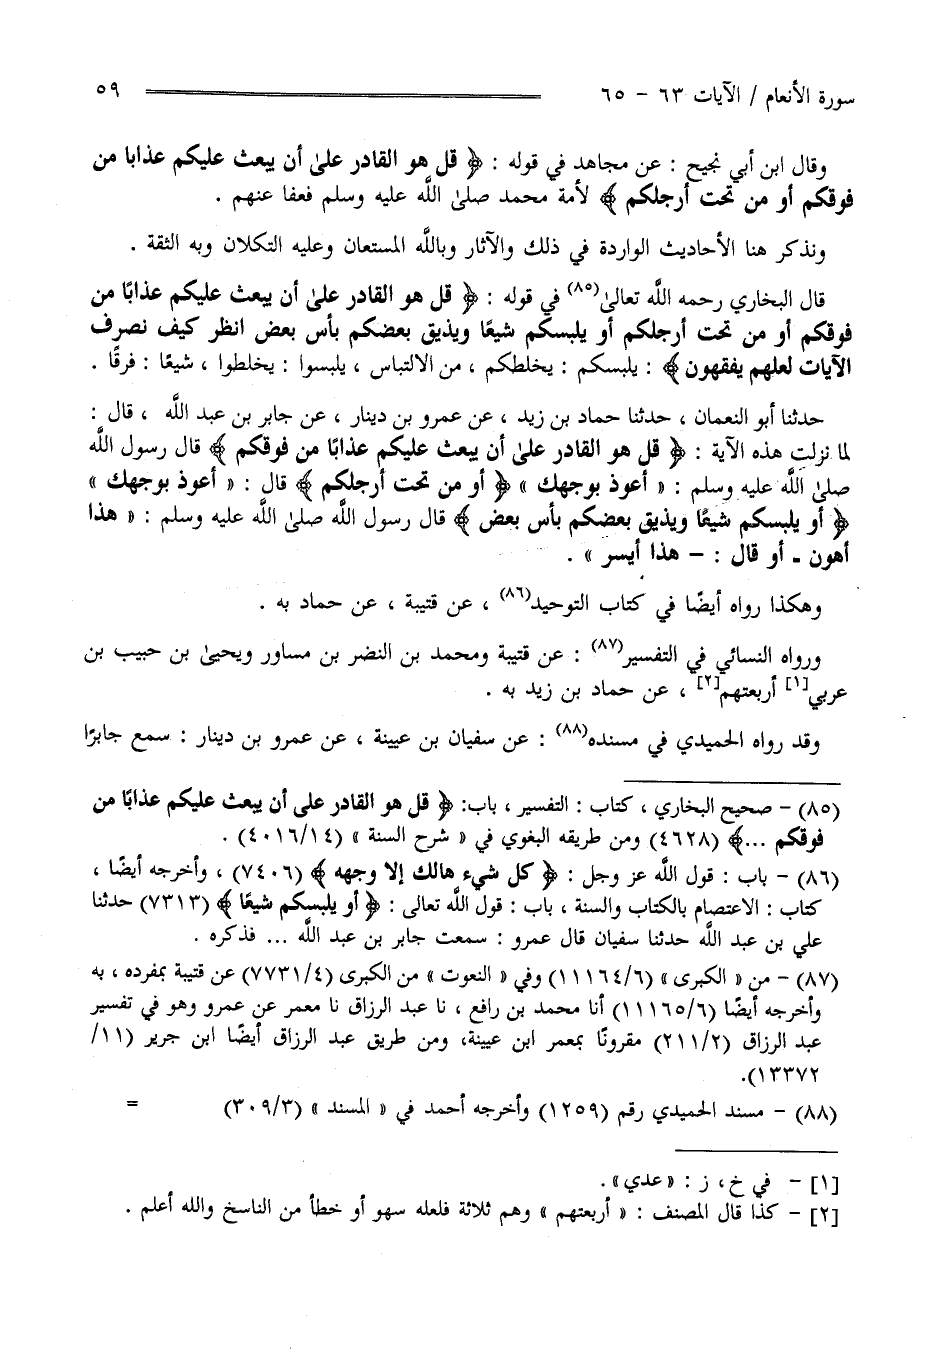 سورة الأنعام / الآيات ٦٣ - ٦٥ ٥٩
وقال ابن أبي نجيح : عن مجاهد في قوله : ﴿ قل هو القادر علىٰ أن يبعث عليكم عذابا من
فوقكم أو من تحت أرجلكم ﴾ لأمة محمد صلىٰ اللَّه عليه وسلم فعفا عنهم .
ونذكر هنا الأحاديث الواردة في ذلك والآثار وباللَّه المستعان وعليه التكلان وبه الثقة .
قال البخاري رحمه اللَّه تعالىٰ(٨٥) في قوله : ﴿ قل هو القادر علىٰ أن يبعث عليكم عذابًا من
فوقكم أو من تحت أرجلكم أو يلبسكم شيعًا ويذيق بعضكم بأس بعض انظر كيف نصرف
الآيات لعلهم يفقهون ﴾ : يلبسكم : يخلطكم ، من الالتباس ، يلبسوا : يخلطوا ، شيعًا : فرقًا .
حدثنا أبو النعمان ، حدثنا حماد بن زيد ، عن عمرو بن دينار ، عن جابر بن عبد اللَّه ، قال :
لما نزلت هذه الآية : ﴿ قل هو القادر علىٰ أن يبعث عليكم عذابًا من فوقكم ﴾ قال رسول اللَّه
صلىٰ اللَّه عليه وسلم : « أعوذ بوجهك » ﴿ أو من تحت أرجلكم ﴾ قال : « أعوذ بوجهك »
﴿ أو يلبسكم شيعًا ويذيق بعضكم بأس بعض ﴾ قال رسول اللَّه صلىٰ اللَّه عليه وسلم : « هذا
أهون ـ أو قال : - هذا أيسر » .
وهكذا رواه أيضًا في كتاب التوحيد(٨٦) ، عن قتيبة ، عن حماد به .
ورواه النسائي في التفسير(٨٧) : عن قتيبة ومحمد بن النضر بن مساور ويحيىٰ بن حبيب بن
عربي[١] أربعتهم[٢] ، عن حماد بن زيد به .
وقد رواه الحميدي في مسنده(٨٨) : عن سفيان بن عيينة ، عن عمرو بن دينار : سمع جابرًا
(٨٥) - صحيح البخاري ، كتاب : التفسير ، باب: ﴿ قل هو القادر على أن يبعث عليكم عذابًا من
فوقكم ...﴾ (٤٦٢٨) ومن طريقه البغوي في « شرح السنة » (٤٠١٦/١٤) .
(٨٦) - باب : قول اللَّه عز وجل : ﴿ كل شيء هالك إلا وجهه ﴾ (٧٤٠٦) ، وأخرجه أيضًا ،
كتاب : الاعتصام بالكتاب والسنة ، باب : قول اللَّه تعالى : ﴿ أو يلبسكم شيعًا ﴾ (٧٣١٣) حدثنا
علي بن عبد اللَّه حدثنا سفيان قال عمرو : سمعت جابر بن عبد اللَّه ... فذكره .
(٨٧) - من « الكبرى » (١١١٦٤/٦) وفي « النعوت » من الكبرى (٧٧٣١/٤) عن قتيبة بمفرده ، به
وأخرجه أيضًا (١١١٦٥/٦) أنا محمد بن رافع ، نا عبد الرزاق نا معمر عن عمرو وهو في تفسير
عبد الرزاق (٢١١/٢) مقرونًا بمعمر ابن عيينة، ومن طريق عبد الرزاق أيضًا ابن جرير (١١/
١٣٣٧٢).
(٨٨) - مسند الحميدي رقم (١٢٥٩) وأخرجه أحمد في « المسند » (٣٠٩/٣) =
[١] - في خ، ز : «عدي» .
[٢] - كذا قال المصنف : « أربعتهم » وهم ثلاثة فلعله سهو أو خطأ من الناسخ والله أعلم .